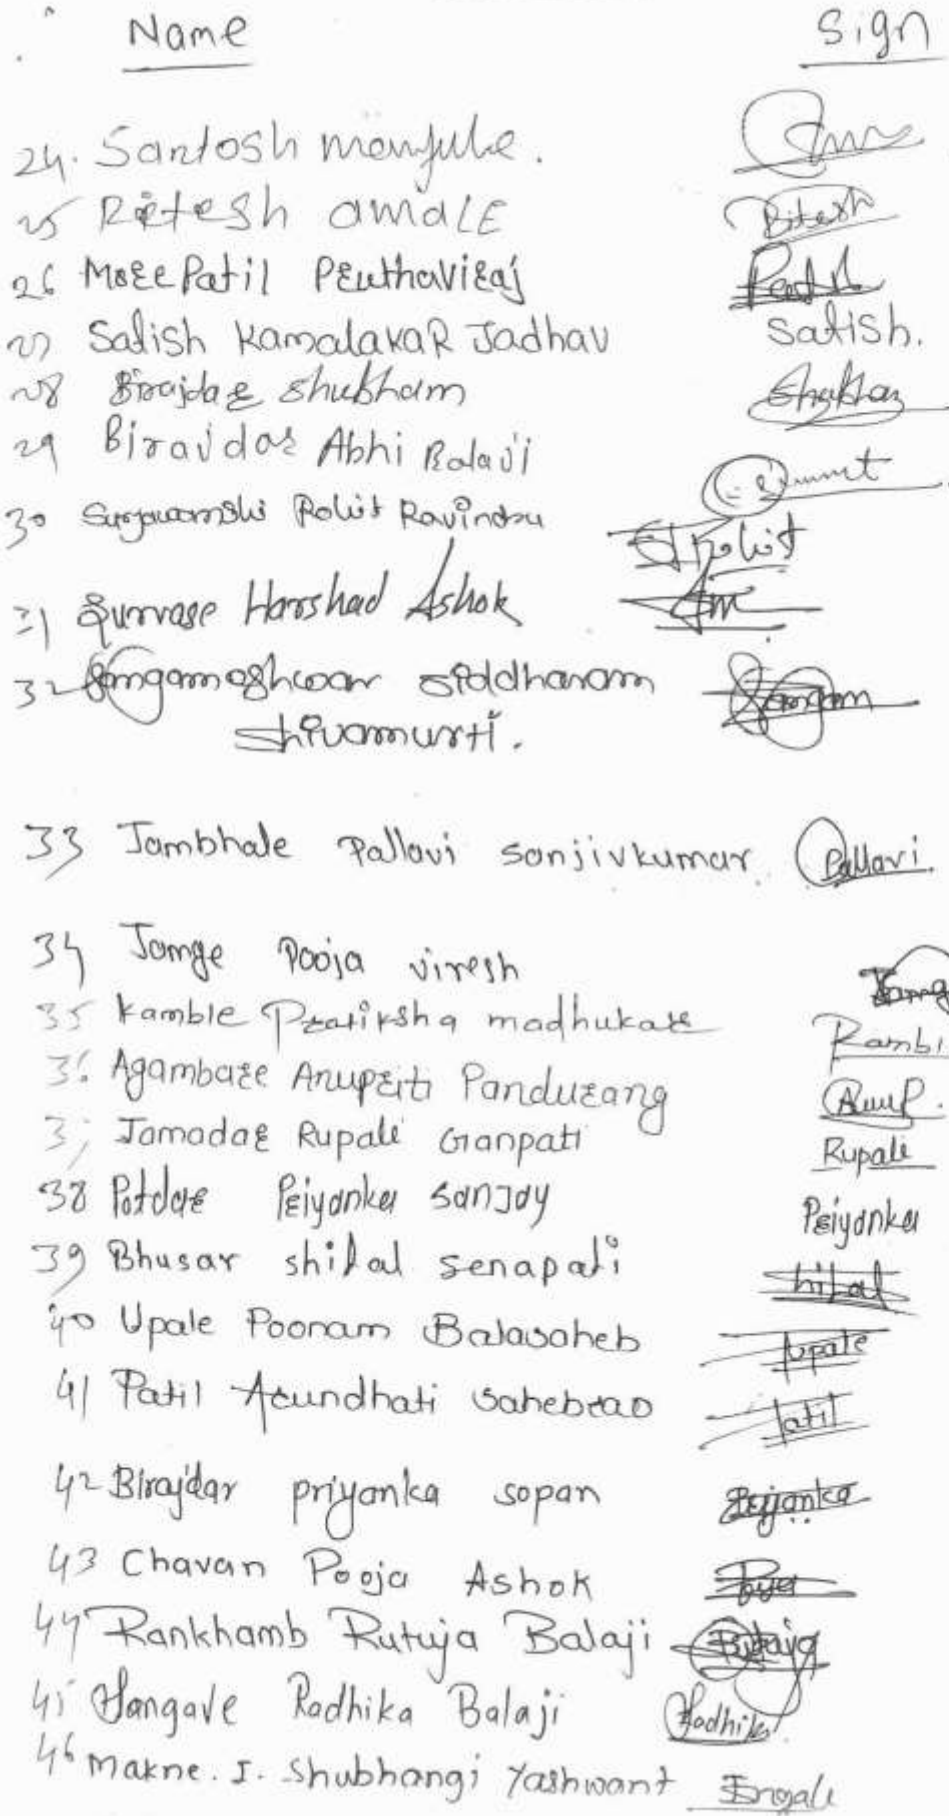 Name Sign
24. Santosh manjule.
25 Ritesh amale Ritesh
26 More Patil Pruthaviraj
27 Satish Kamalakar Jadhav Satish.
28 Birajdar Shubham
29 Birajdar Abhi Balaji
30 Suryawamshi Rohit Ravindra Rohit
31 Gurvase Harshad Ashok
32 Sangameshwar Siddharam Sangam
Shivamurti.
33 Jambhale Pallavi Sanjivkumar. Pallavi
34 Jamge Pooja viresh Jamg
35 Kamble Pratiksha madhukar Kambl
36 Agambare Anupriti Pandurang Anup.
37 Jamadar Rupali Ganpati Rupali
38 Potdar Priyanka Sanjay Priyanka
39 Bhusar shital senapati shital
40 Upale Poonam Balasaheb Upale
41 Patil Arundhati Sahebrao Patil
42 Birajdar priyanka sopan Priyanka
43 Chavan Pooja Ashok Pooja
44 Rankhamb Rutuja Balaji Rutuja
45 Hangave Radhika Balaji Radhika
46 Makne. I. Shubhangi Yashwant Ingale